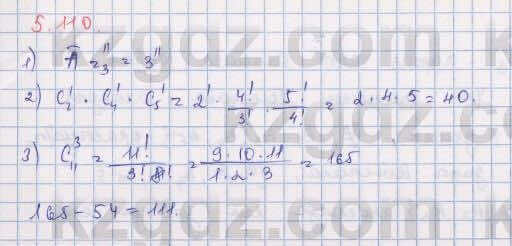 5.110.
1) A̅ = 3¹¹ = 3¹¹
2) C₂¹ · C₄¹ · C₅¹ = 2! · 4!/3! · 5!/4! = 2 · 4 · 5 = 40.
3) C₁₁³ = 11!/3! 8! = 9·10·11/1·2·3 = 165
165 - 54 = 111.
kzgdz.com